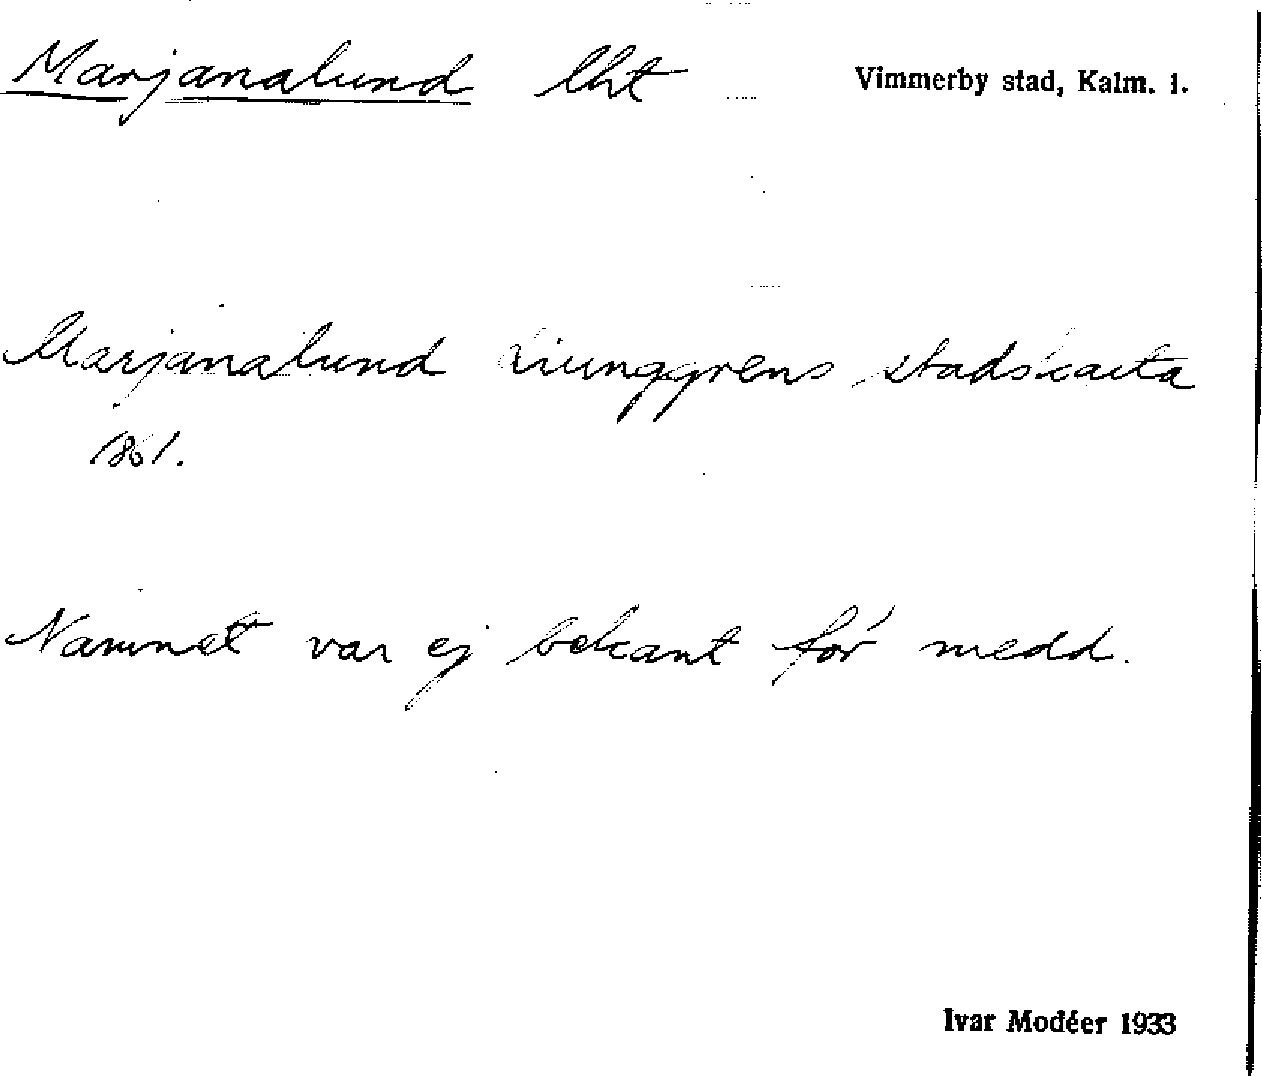 Marjanalund lht Vimmerby stad, Kalm. l.
Marjanalund Ljunggrens stadskarta
1861.
Namnet var ej bekant för medd.
Ivar Modéer 1933